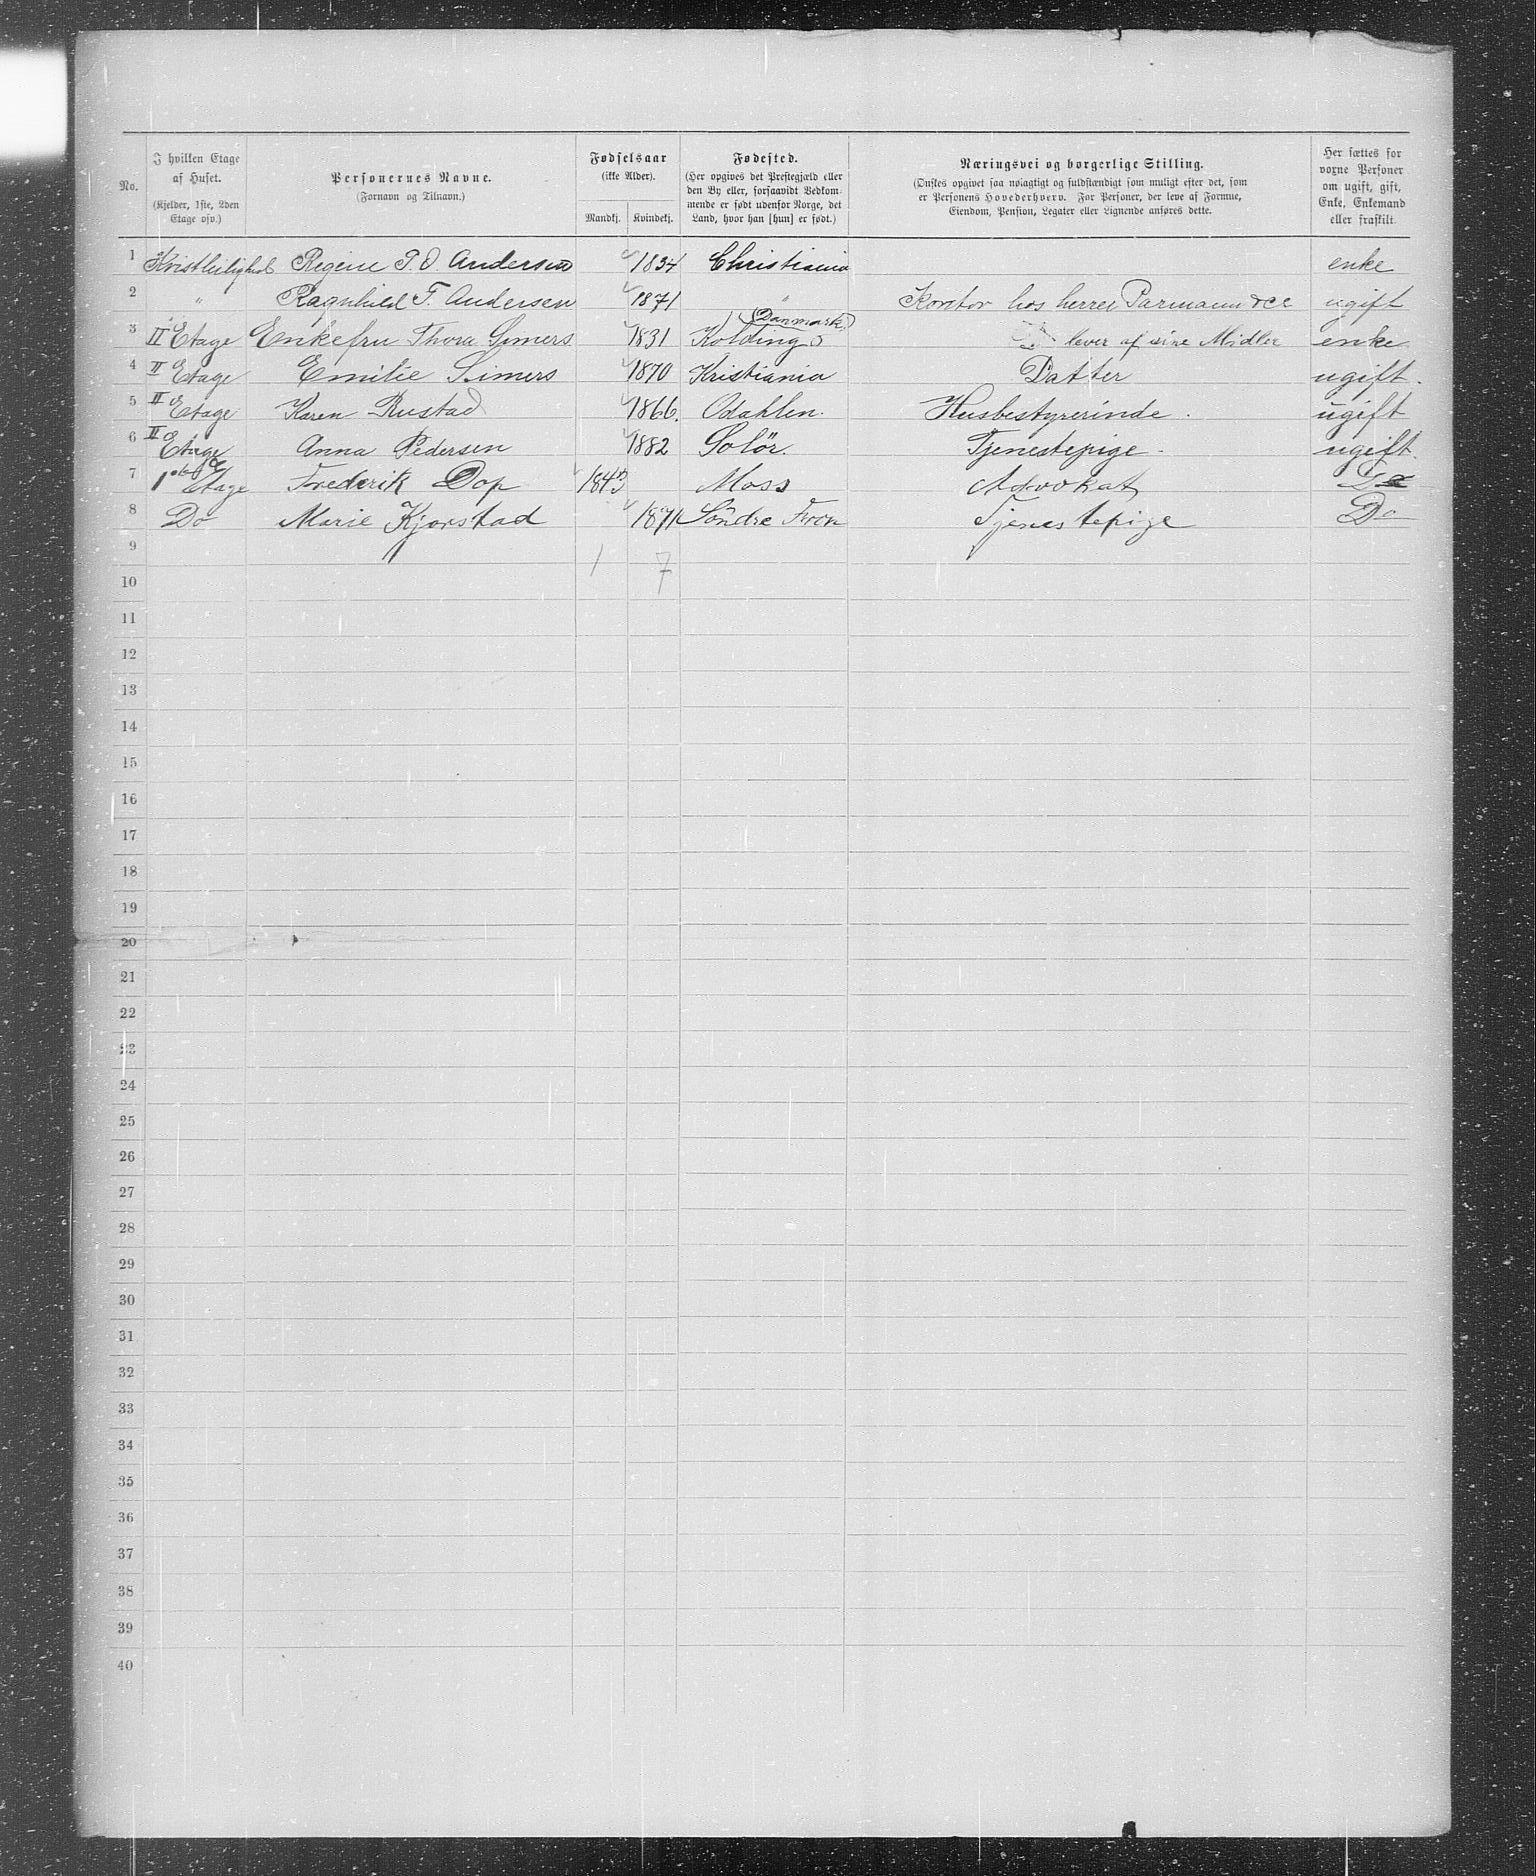 No.
I hvilken Etage
af Huset.
(Kjelder, 1ste, 2den
Etage osv.)
Personernes Navne.
(Fornavn og Tilnavn.)
Fødselsaar
(ikke Alder).
Mandkj. Kvindekj.
Fødested.
(Her opgives det Prestegjæld eller
den By eller, forsaavidt Vedkom-
mende er født udenfor Norge, det
Land, hvor han [hun] er født.)
Næringsvei og borgerlige Stilling.
(Ønskes opgivet saa nøiagtigt og fuldstændigt som muligt efter det, som
er Personens Hovederhverv. For Personer, der leve af Formue,
Eiendom, Pension, Legater eller Lignende anføres dette.
Her sættes for
voxne Personer
om ugift, gift,
Enke, Enkemand
eller fraskilt.
1 Kvistleilighed Regine P. O. Andersen 1834 Christiania enke
2 " Ragnhild F. Andersen 1871 " Kontor hos herrer Parmann & Co ugift
3 II Etage Enkefru Thora Simers 1831 Kolding (Danmark) lever af sine Midler enke
4 II Etage Emilie Simers 1870 Kristiania Datter ugift.
5 II Etage Karen Rustad 1866. Odahlen. Husbestyrerinde. ugift
6 II Etage Anna Pedersen 1882 Solör. Tjenestepige. ugift.
7 1ste Etage Frederik Dop 1843 Moss Advokat Do
8 Do Marie Kjorstad 1871 Söndre Fron Tjenestepige Do
9
1 7
10
11
12
13
14
15
16
17
18
19
20
21
22
23
24
25
26
27
28
29
30
31
32
33
34
35
36
37
38
39
40